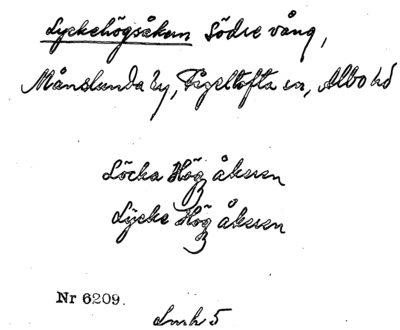 Lyckehögsåkern Södre vång,
Månslunda by, Fågeltofta sn, Albo hd
Löcka Hög åkern
Lÿcke Hög åkern
Nr 6209.